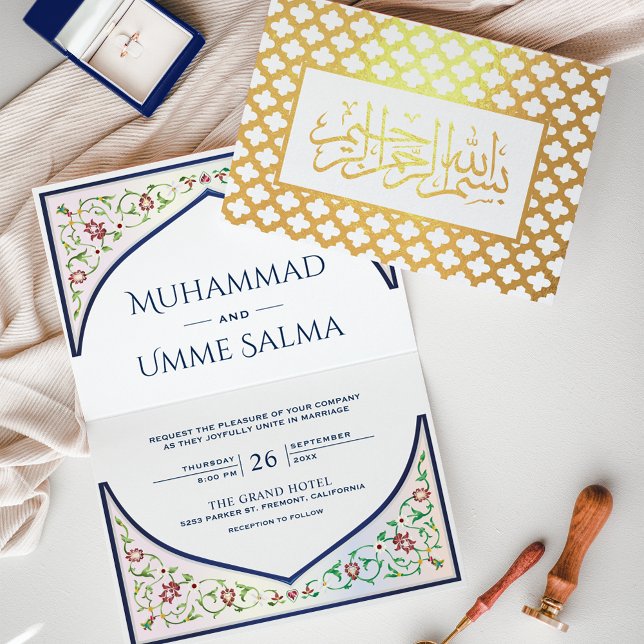 بسم الله الرحمن الرحيم
MUHAMMAD
AND
UMME SALMA
REQUEST THE PLEASURE OF YOUR COMPANY
AS THEY JOYFULLY UNITE IN MARRIAGE
THURSDAY
8:00 PM
26
SEPTEMBER
20XX
THE GRAND HOTEL
5253 PARKER ST. FREMONT, CALIFORNIA
RECEPTION TO FOLLOW